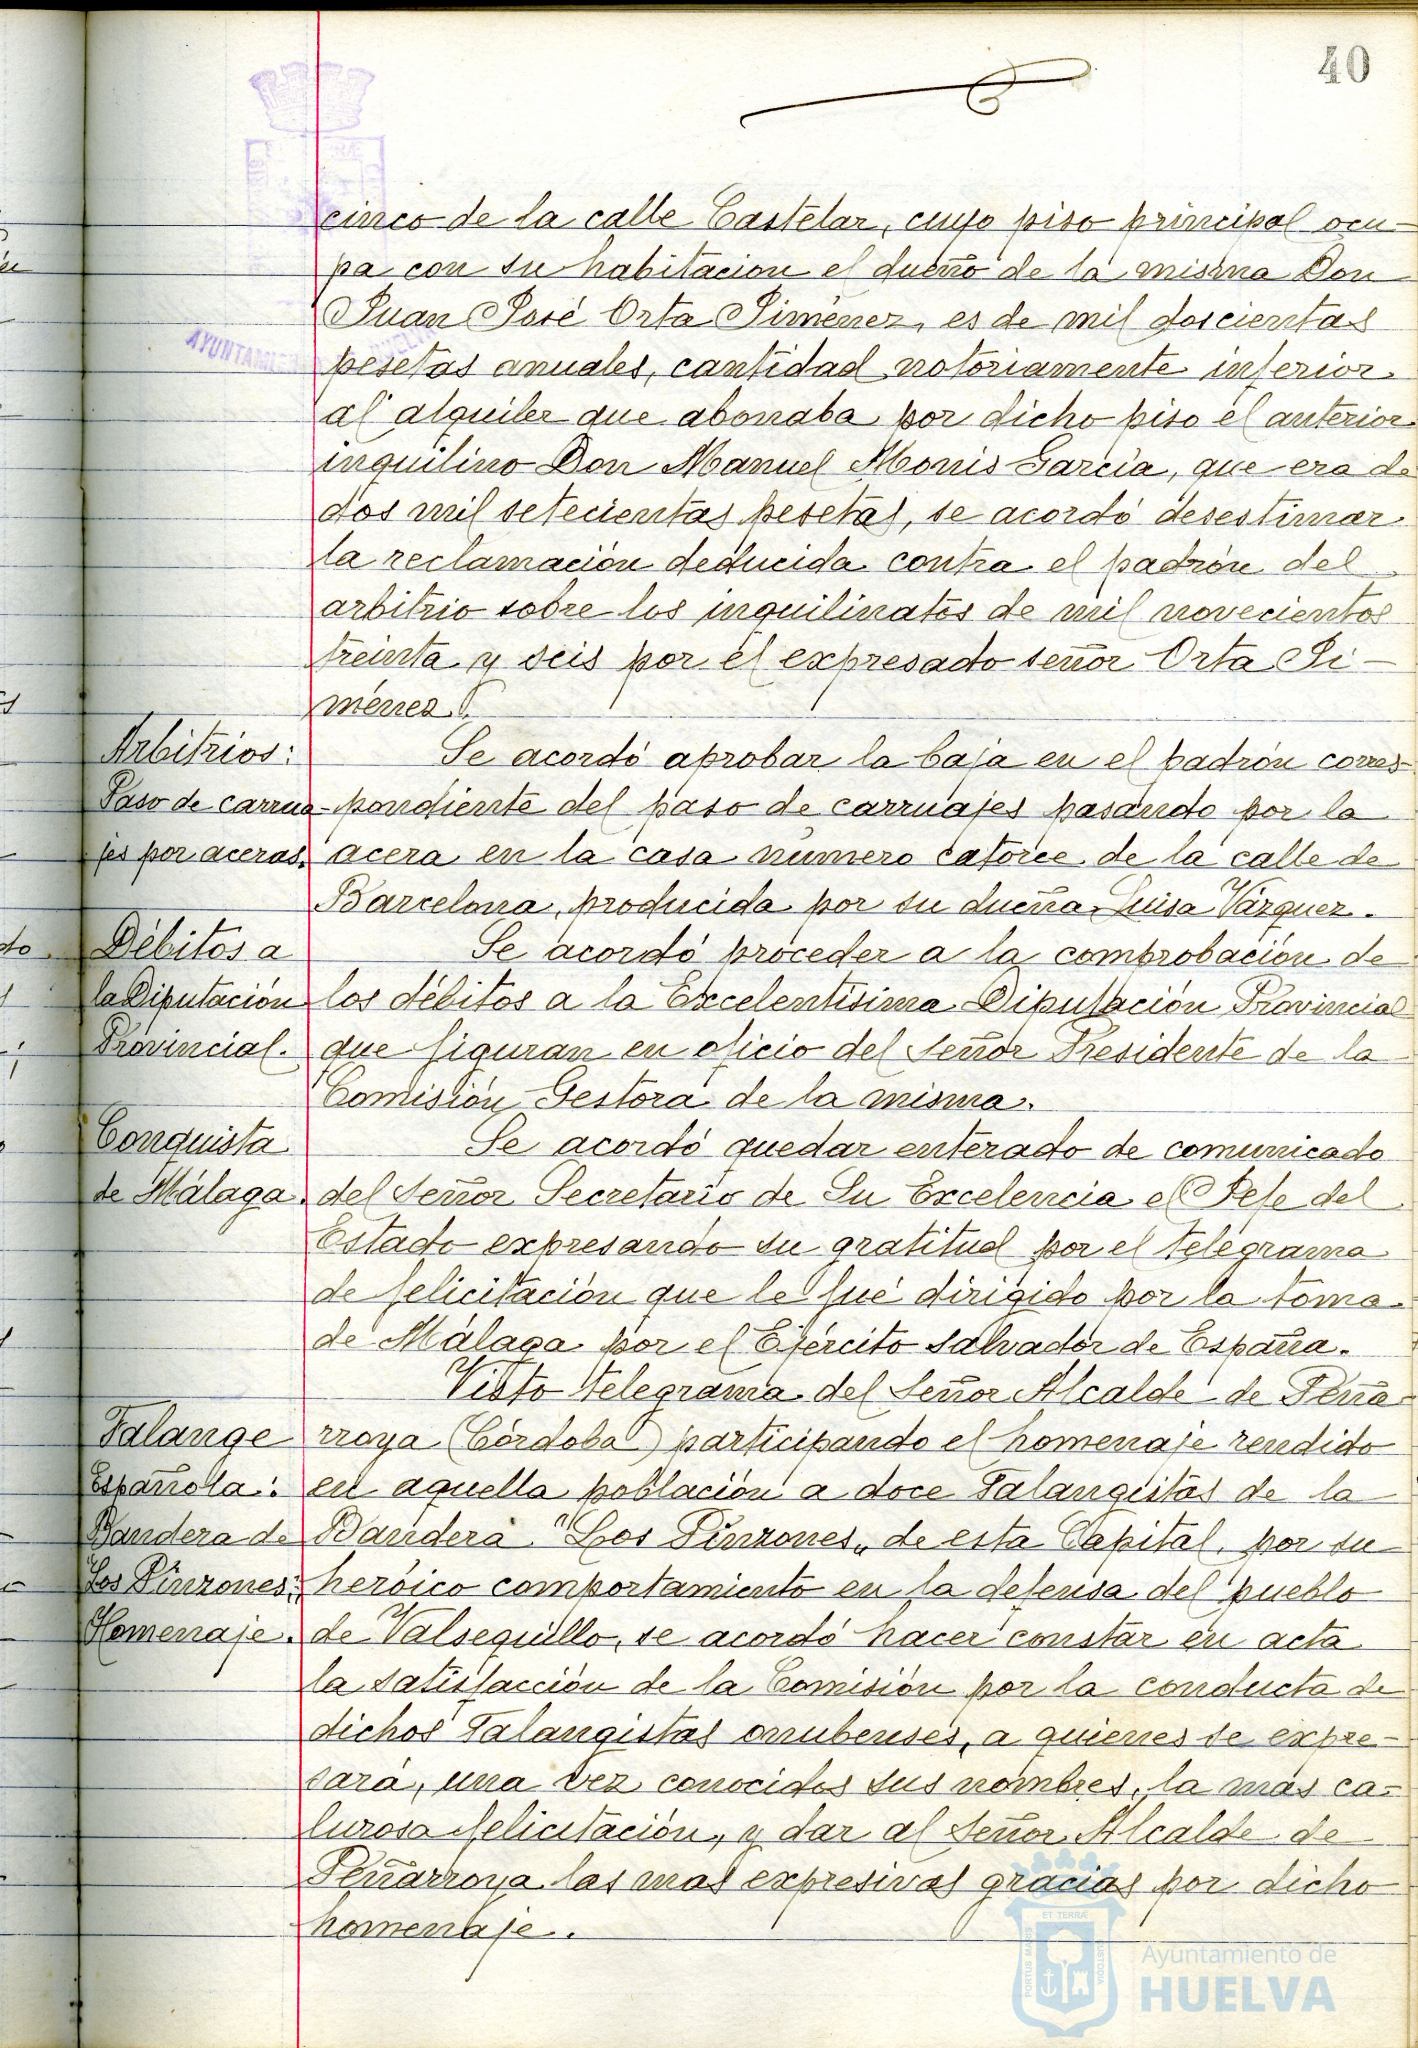 40
cinco de la calle Castelar, cuyo piso principal ocu-
pa con su habitacion el dueño de la misma Don
Juan José Orta Jiménez, es de mil doscientas
pesetas anuales, cantidad notoriamente inferior
al alquiler que abonaba por dicho piso el anterior
inquilino Don Manuel Monis García, que era de
dos mil setecientas pesetas, se acordó desestimar
la reclamación deducida contra el padrón del
arbitrio sobre los inquilinatos de mil novecientos
treinta y seis por el expresado señor Orta Ji-
ménez.
Arbitrios:
Paso de carrua-
jes por aceras.
Se acordó aprobar la baja en el padrón corres-
pondiente del paso de carruajes pasando por la
acera en la casa número catorce de la calle de
Barcelona, producida por su dueña Luisa Vázquez.
Débitos a
la Diputación
Provincial.
Se acordó proceder a la comprobación de
los débitos a la Excelentísima Diputación Provincial
que figuran en oficio del Señor Presidente de la
Comisión Gestora de la misma.
Conquista
de Málaga.
Se acordó quedar enterado de comunicado
del Señor Secretario de Su Excelencia el Jefe del
Estado expresando su gratitud por el telegrama
de felicitación que le fué dirigido por la toma
de Málaga por el Ejército salvador de España.
Falange
Española:
Bandera de
Los Pinzones:
Homenaje.
Visto telegrama del Señor Alcalde de Peña
rroya (Córdoba) participando el homenaje rendido
en aquella población a doce Falangistas de la
Bandera "Los Pinzones„ de esta Capital, por su
heróico comportamiento en la defensa del pueblo
de Valsequillo, se acordó hacer constar en acta
la satisfacción de la Comisión por la conducta de
dichos Falangistas onubenses, a quienes se expre-
sará, una vez conocidos sus nombres, la más ca-
lurosa felicitación, y dar al Señor Alcalde de
Peñarroya las mas expresivas gracias por dicho
homenaje.
Ayuntamiento de
HUELVA
PORTUS MARIS
ET TERRÆ
CUSTODIA